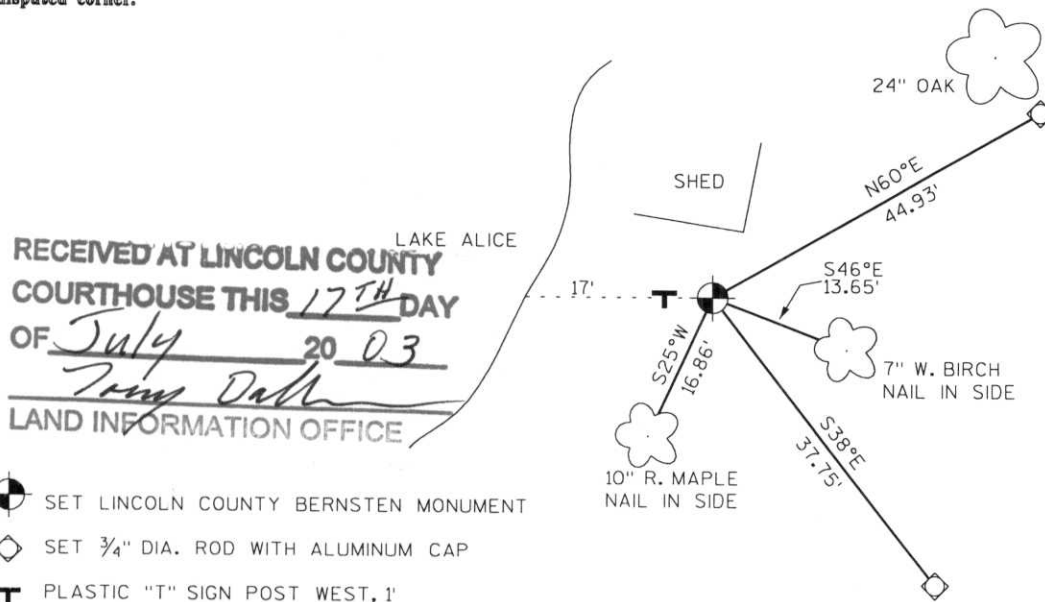 disputed corner.
24" OAK
SHED
N60°E
44.93'
LAKE ALICE
RECEIVED AT LINCOLN COUNTY
COURTHOUSE THIS 17TH DAY
OF July 20 03
LAND INFORMATION OFFICE
17'
T
S46°E
13.65'
S25°W
16.86'
7" W. BIRCH
NAIL IN SIDE
S38°E
37.75'
10" R. MAPLE
NAIL IN SIDE
SET LINCOLN COUNTY BERNSTEN MONUMENT
SET 3/4" DIA. ROD WITH ALUMINUM CAP
T PLASTIC "T" SIGN POST WEST, 1'